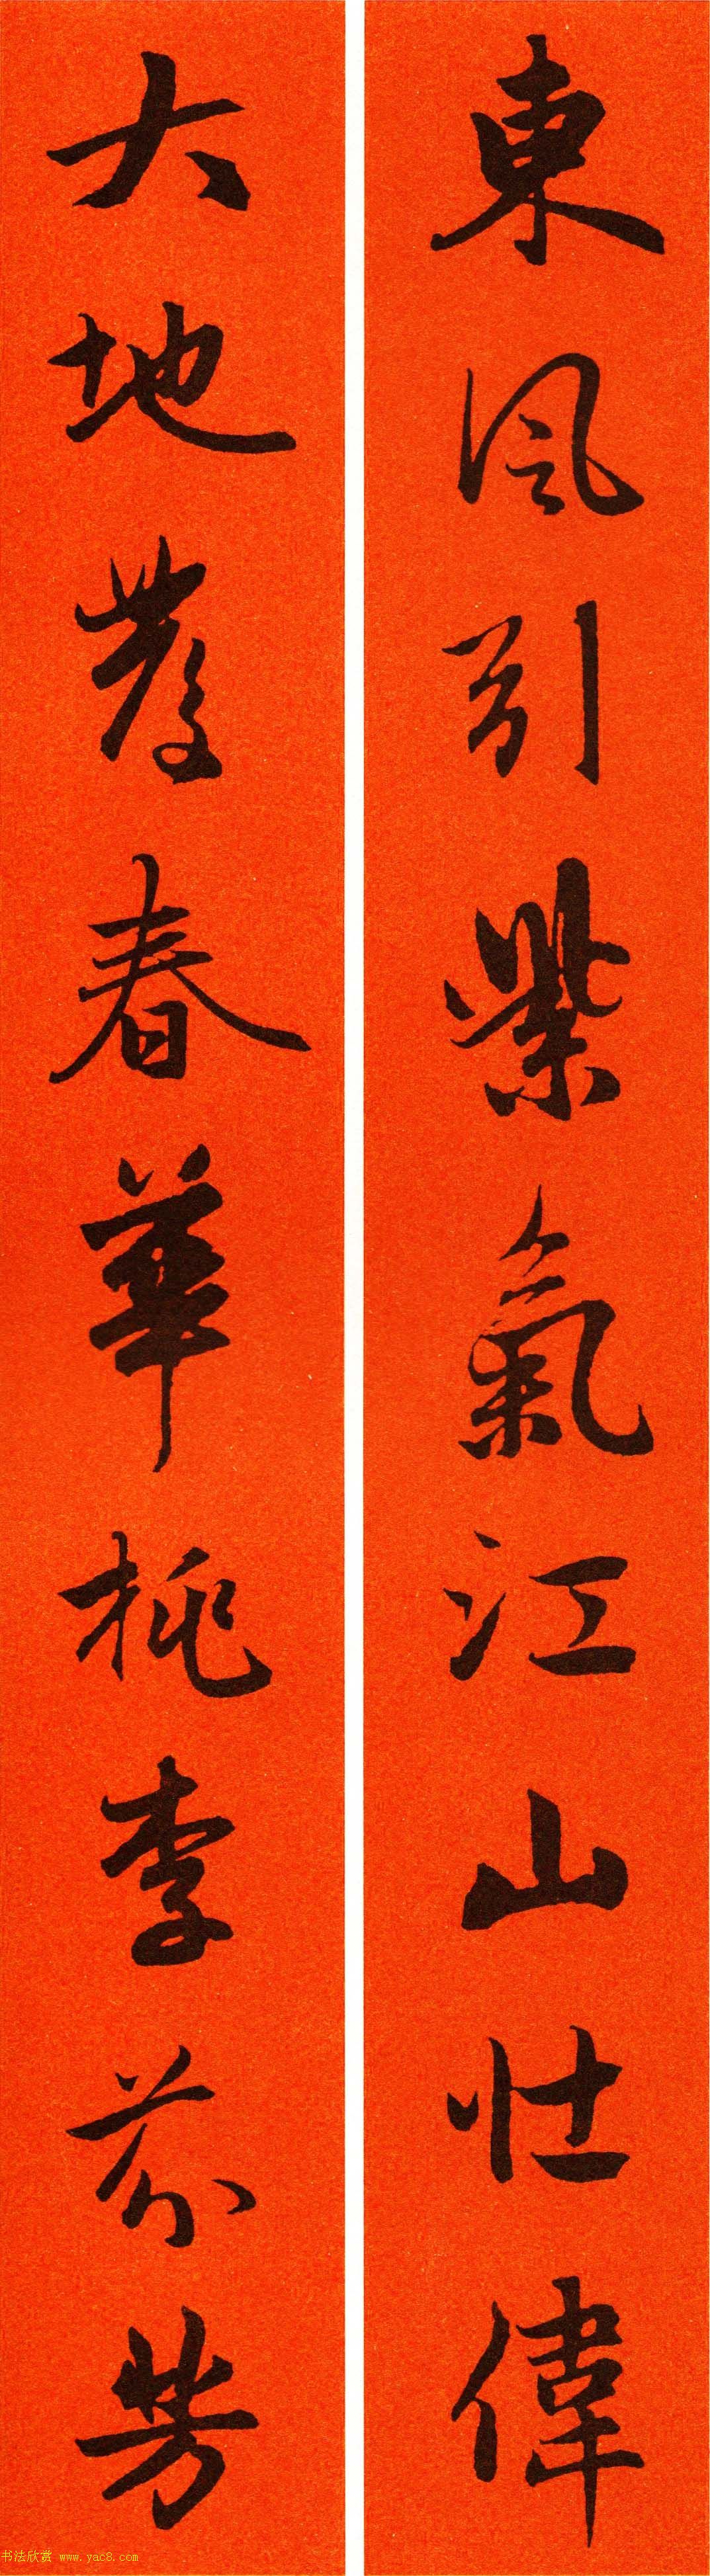 東風引紫氣江山壯偉
大地發春華桃李芬芳
书法欣赏 www.yac8.com